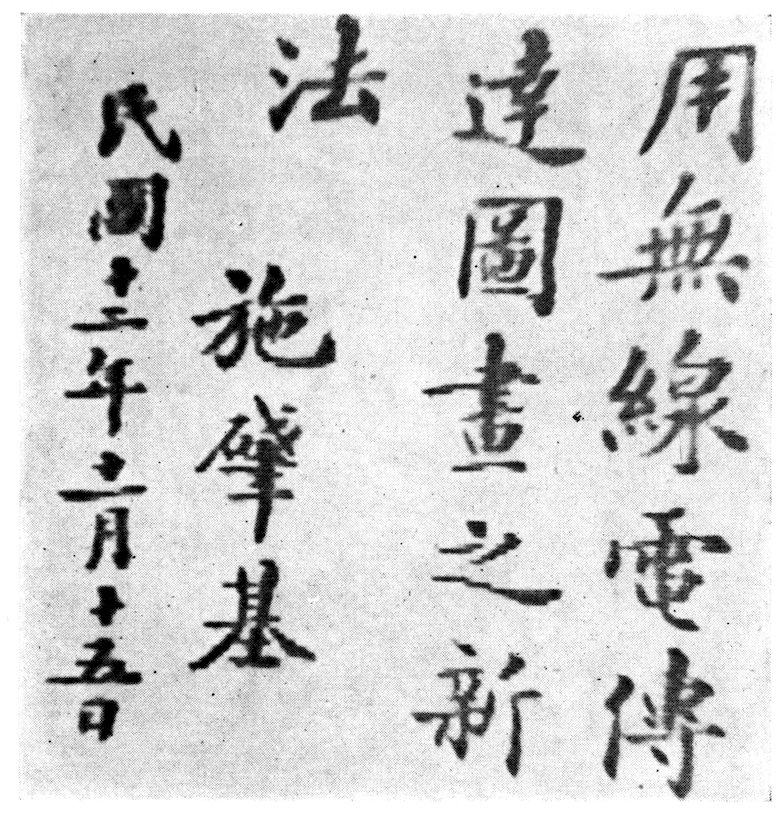 用無線電傳
達圖畫之新
法
施肇基
民國十二年十一月十五日